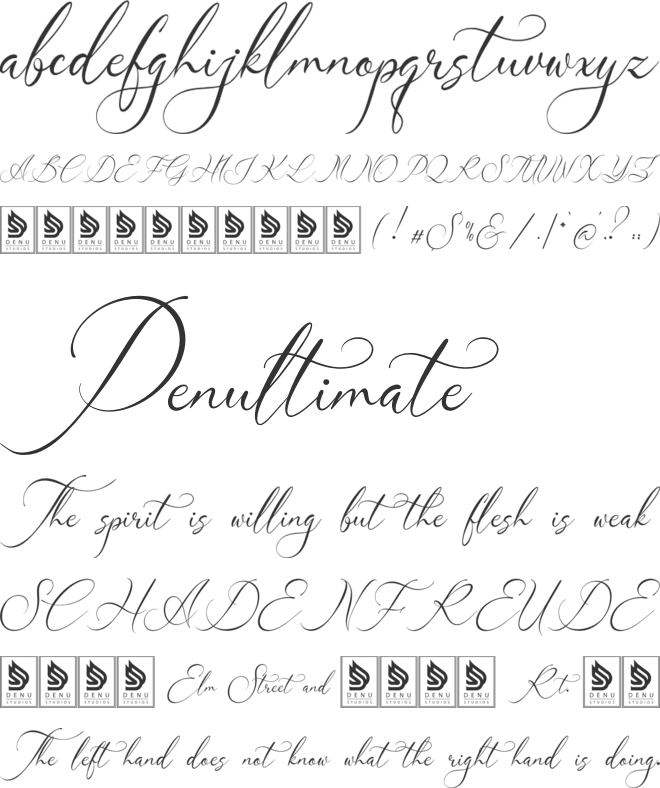 abcdefghijklmnopqrstuvwxyz
ABCDEFGHIJKLMNOPQRSTUVWXYZ
DENU STUDIOS DENU STUDIOS DENU STUDIOS DENU STUDIOS DENU STUDIOS DENU STUDIOS DENU STUDIOS DENU STUDIOS DENU STUDIOS DENU STUDIOS (!#$%&/.|*@'.?:;)
Penultimate
The spirit is willing but the flesh is weak
SCHADENFREUDE
DENU STUDIOS DENU STUDIOS DENU STUDIOS DENU STUDIOS Elm Street and DENU STUDIOS DENU STUDIOS DENU STUDIOS DENU STUDIOS Rt. DENU STUDIOS DENU STUDIOS
The left hand does not know what the right hand is doing.